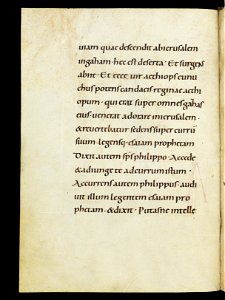 uiam quae descendit abierusalem
ingaham · hec est deserta · Et surgens
abiit · Et ecce uir aethiops eunu
chus potens candacis reginae aethi
opum · qui erat super omnes gahas
eius · uenerat adorare inierusalem ·
& reuertebatur sedens super curru
suum · legensq; esaiam prophetam
Dixit autem sps philippo · Accede
& adiunge te adcurrum istum ·
Accurrens autem philippus · audi
uit illum legentem esaiam pro
phetam · & dixit · Putasne intelle